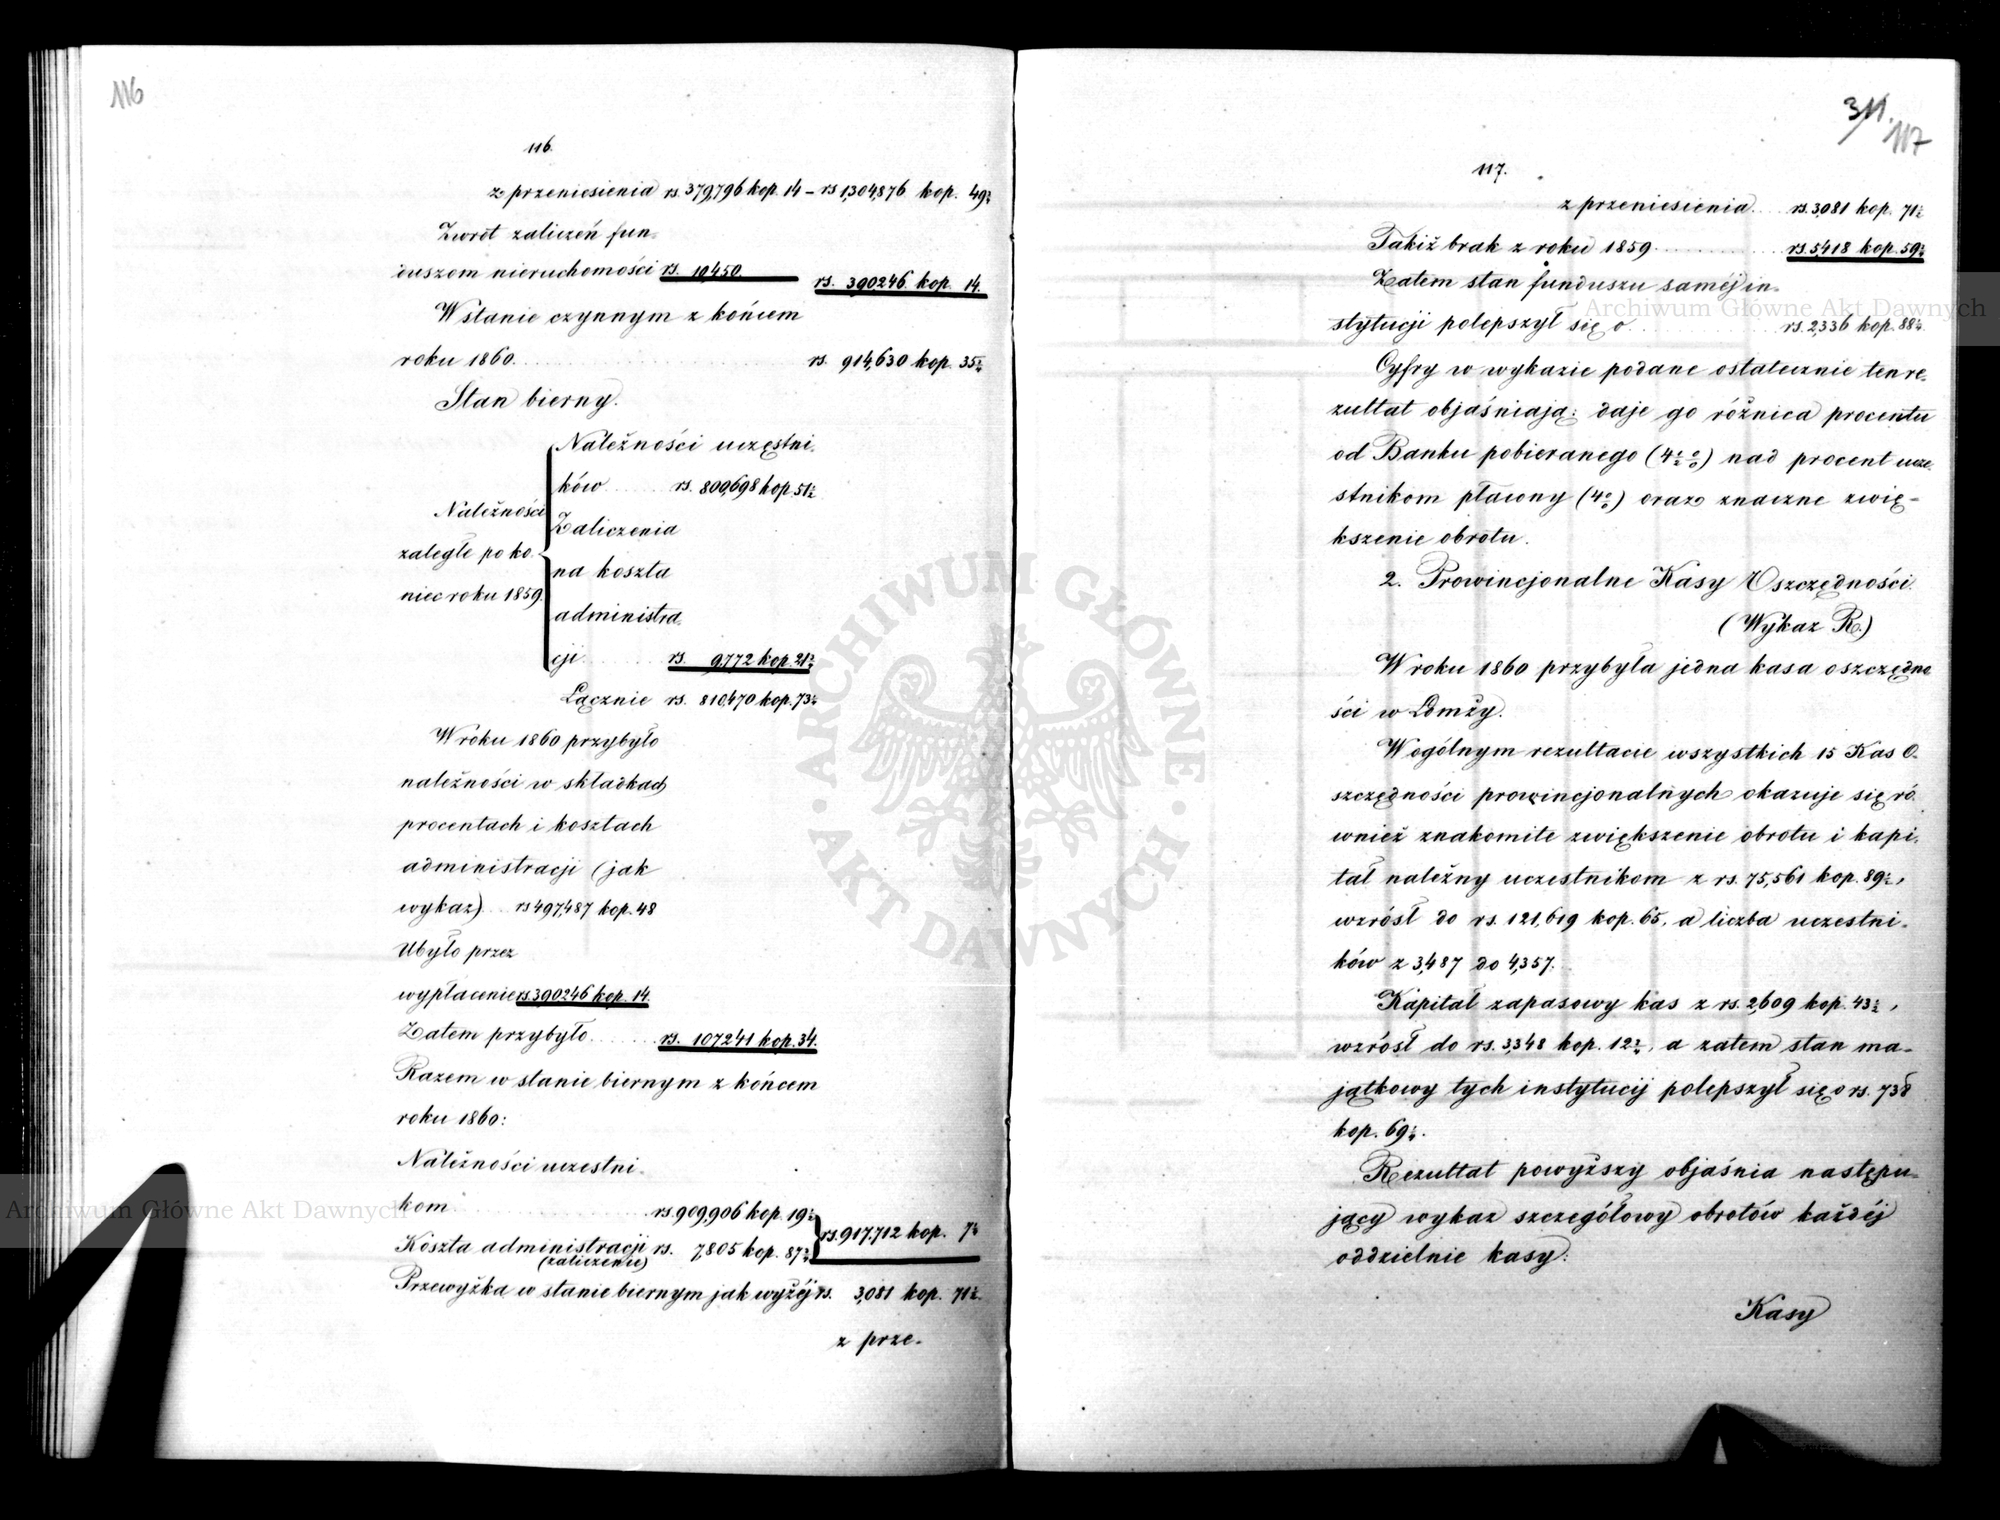 116
116.
z przeniesienia rs. 379,796 kop. 14 – rs 1,304,876 kop. 49½
Zwrot zaliczeń fun-
duszom nieruchomości rs. 10,450.
rs. 390246 kop. 14.
W stanie czynnym z końcem
roku 1860. rs. 914,630 kop. 35¾
Stan bierny.
Należności uczęstni-
ków rs. 800,698 kop. 51½
Należności
Zaliczenia
zaległe po ko-
na koszta
niec roku 1859.
administra-
cji rs. 9,772 kop. 21¾
Łącznie rs. 810,470 kop. 73¼
W roku 1860 przybyło
należności w składkach
procentach i kosztach
administracji (jak
wykaz) rs 497,487 kop. 48
Ubyło przez
wypłacenie rs. 390246 kop. 14.
Zatem przybyło rs. 107241 kop. 34.
Razem w stanie biernym z końcem
roku 1860:
Należności uczestni-
kom rs. 909,906 kop. 19½
rs. 917,712 kop. 7¼
Koszta administracji rs. 7,805 kop. 87¾
(zaliczenie)
Przewyżka w stanie biernym jak wyżéj rs. 3,081 kop. 71½.
z prze-
311.
117
117.
z przeniesienia rs. 3,081 kop. 71½
Takiż brak z roku 1859 rs 5,418 kop. 59¾
Zatem stan funduszu saméj in-
stytucji polepszył się o rs. 2,336 kop. 88¼
Cyfry w wykazie podane ostatecznie ten re-
zultat objaśniają: daje go różnica procentu
od Banku pobieranego (4½ %) nad procent ucze-
stnikom płacony (4%) oraz znaczne zwię-
kszenie obrotu.
2. Prowincjonalne Kasy Oszczędności.
(Wykaz R.)
W roku 1860 przybyła jedna kasa oszczędno-
ści w Łomży.
W ogólnym rezultacie wszystkich 15 Kas O-
szczędności prowincjonalnych okazuje się ró-
wnież znakomite zwiększenie obrotu i kapi-
tał należny uczestnikom z rs. 75,561 kop. 89½,
wzrósł do rs. 121,619 kop. 65, a liczba uczestni-
ków z 3,487 do 4,357.
Kapitał zapasowy kas z rs. 2,609 kop. 43½,
wzrósł do rs. 3,348 kop. 12¾, a zatem stan ma-
jątkowy tych instytucij polepszył się o rs. 738
kop. 69¼.
Rezultat powyższy objaśnia następu-
jący wykaz szczegółowy obrotów każdéj
oddzielnie kasy:
Kasy
Archiwum Główne Akt Dawnych
Archiwum Główne Akt Dawnych
ARCHIWUM GŁÓWNE
AKT DAWNYCH